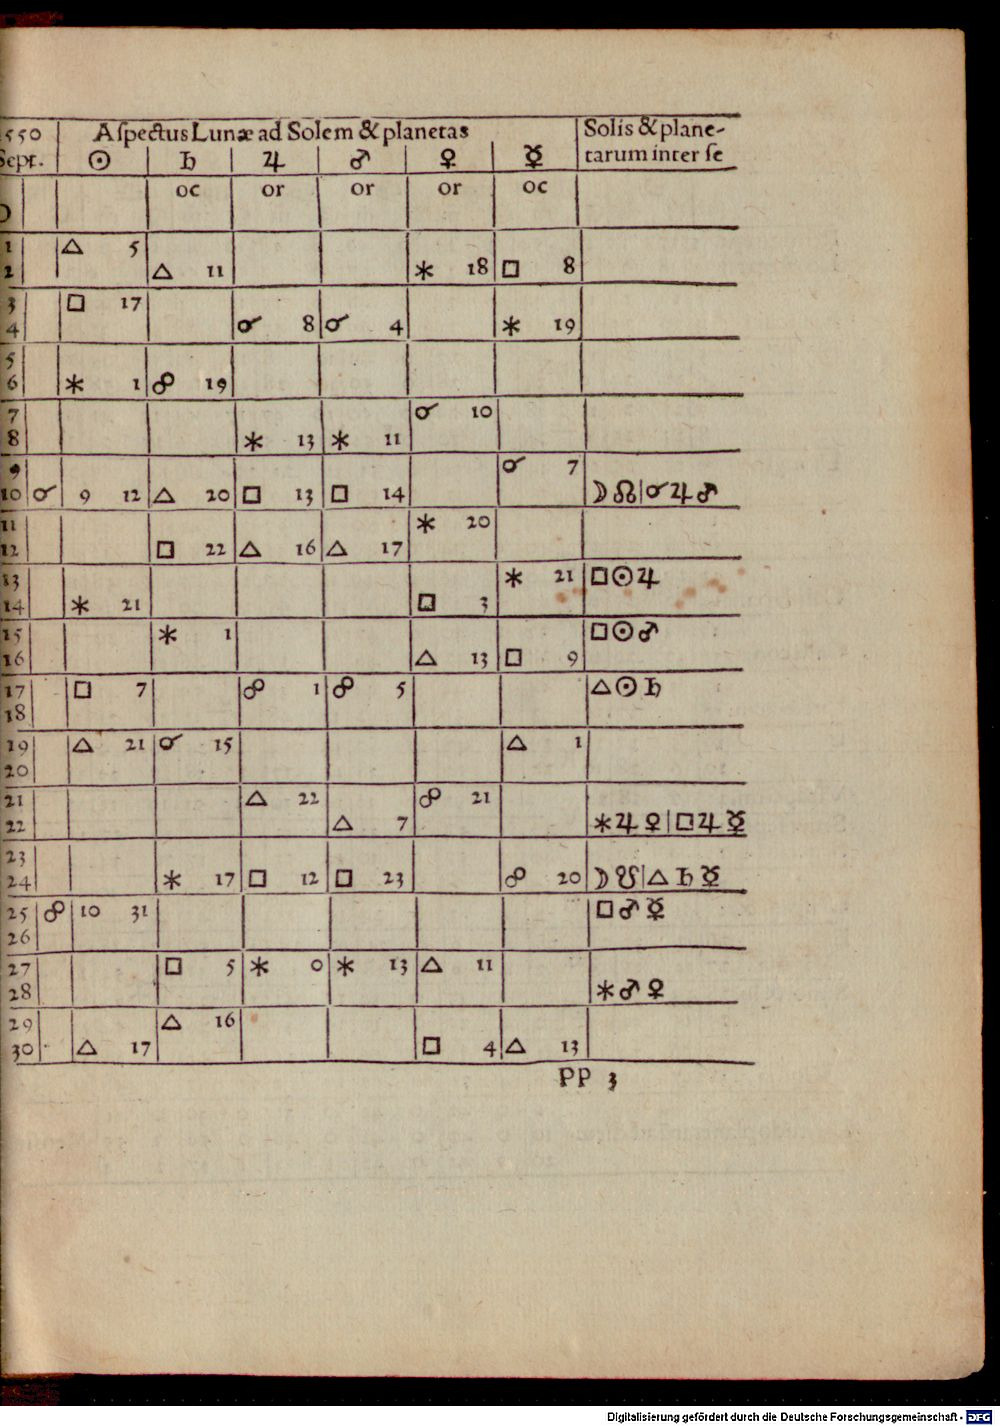 1550 Aſpectus Lunæ ad Solem & planetas Solis & plane-
Sept. ☉ ♄ ♃ ♂ ♀ ☿ tarum inter ſe
oc or or or oc
1 △ 5
2 △ 11 ⚹ 18 □ 8
3 □ 17
4 ☌ 8 ☌ 4 ⚹ 19
5
6 ⚹ 1 ☍ 19
7 ☌ 10
8 ⚹ 13 ⚹ 11
9 ☌ 7
10 ☌ 9 12 △ 20 □ 13 □ 14 ☽ ☊ | ☌ ♃ ♂
11 ⚹ 20
12 □ 22 △ 16 △ 17
13 ⚹ 21 □ ☉ ♃
14 ⚹ 21 □ 3
15 ⚹ 1 □ ☉ ♂
16 △ 13 □ 9
17 □ 7 ☍ 1 ☍ 5 △ ☉ ♄
18
19 △ 21 ☌ 15 △ 1
20
21 △ 22 ☍ 21
22 △ 7 ⚹ ♃ ♀ | □ ♃ ☿
23
24 ⚹ 17 □ 12 □ 23 ☍ 20 ☽ ☋ | △ ♄ ☿
25 ☍ 10 31 □ ♂ ☿
26
27 □ 5 ⚹ 0 ⚹ 13 △ 11
28 ⚹ ♂ ♀
29 △ 16
30 △ 17 □ 4 △ 13
PP 3
Digitalisierung gefördert durch die Deutsche Forschungsgemeinschaft - DFG